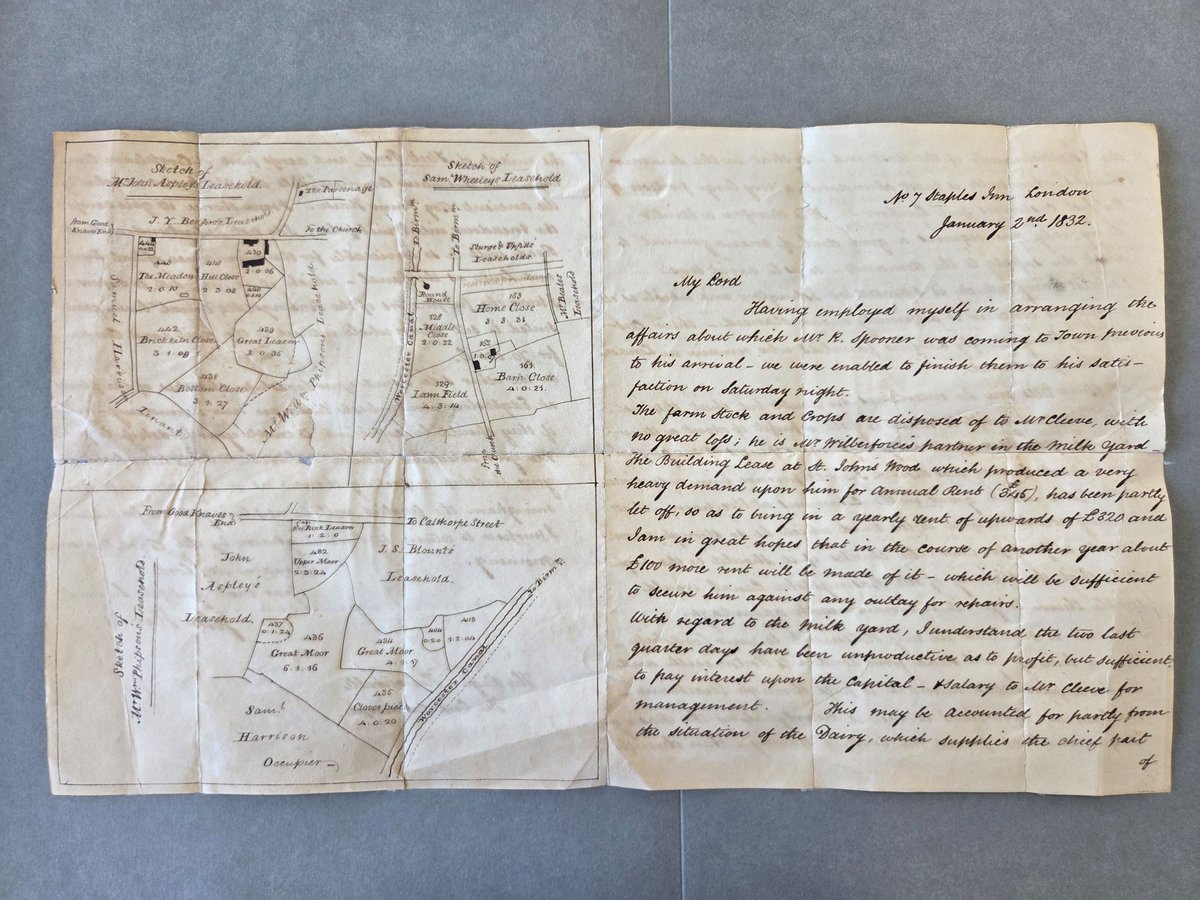 Sketch of
Mr John Aspley's Leasehold.
The Parsonage
J. Y. Leasehold.
from Good
Knaves End
To the Church
Samuel Harrison
443
The Meadow
2:0:10
441
Hill Close
2:3:08
430
1:0:06
442
Brickkiln Close
3:1:09
439
Great Leason
3:0:35
438
Bottom Close
3:1:27
Tenant
Mr Wm Phipson's Leasehold
Sketch of
Saml Wheeley's Leasehold
To Birmm
To Birmm
Sturge & Upfill's
Leaseholds
Mr Beale's
Leasehold
Round
House
128
Middle
Close
2:0:22
163
Home Close
3:3:31
162
161
Barn Close
4:0:21
129
Lawn Field
4:3:14
Worcester Canal
from
the Church
Sketch of
Mr Wm Phipson's Leasehold.
From Good Knaves
End
To Calthorpe Street
John
Aspley's
Leasehold.
Leason
1:2:0
432
Upper Moor
2:3:24
J. S. Blount's
Leasehold.
437
0:1:24
436
Great Moor
6:1:16
434
Great Moor
404
0:2:0
403
1:2:04
435
Clover piece
4:0:20
Saml
Harrison
Occupier
Worcester Canal
To Birmm
No 7 Staples Inn London
January 2nd 1832.
My Lord
Having employed myself in arranging the
affairs about which Mr R. Spooner was coming to Town previous
to his arrival - we were enabled to finish them to his satis-
faction on Saturday night.
The farm Stock and Crops are disposed of to Mr Cleeve, with
no great loss; he is Mr Wilberforce's partner in the Milk Yard
The Building Lease at St. Johns Wood which produced a very
heavy demand upon him for Annual Rent (£345), has been partly
let off, so as to bring in a yearly rent of upwards of £320 and
I am in great hopes that in the course of another year about
£100 more rent will be made of it - which will be sufficient
to secure him against any outlay for repairs.
With regard to the Milk Yard, I understand the two last
quarter days have been unproductive as to profit, but sufficient
to pay interest upon the Capital - & Salary to Mr Cleeve for
management. This may be accounted for partly from
the situation of the Dairy, which supplies the chief part
of